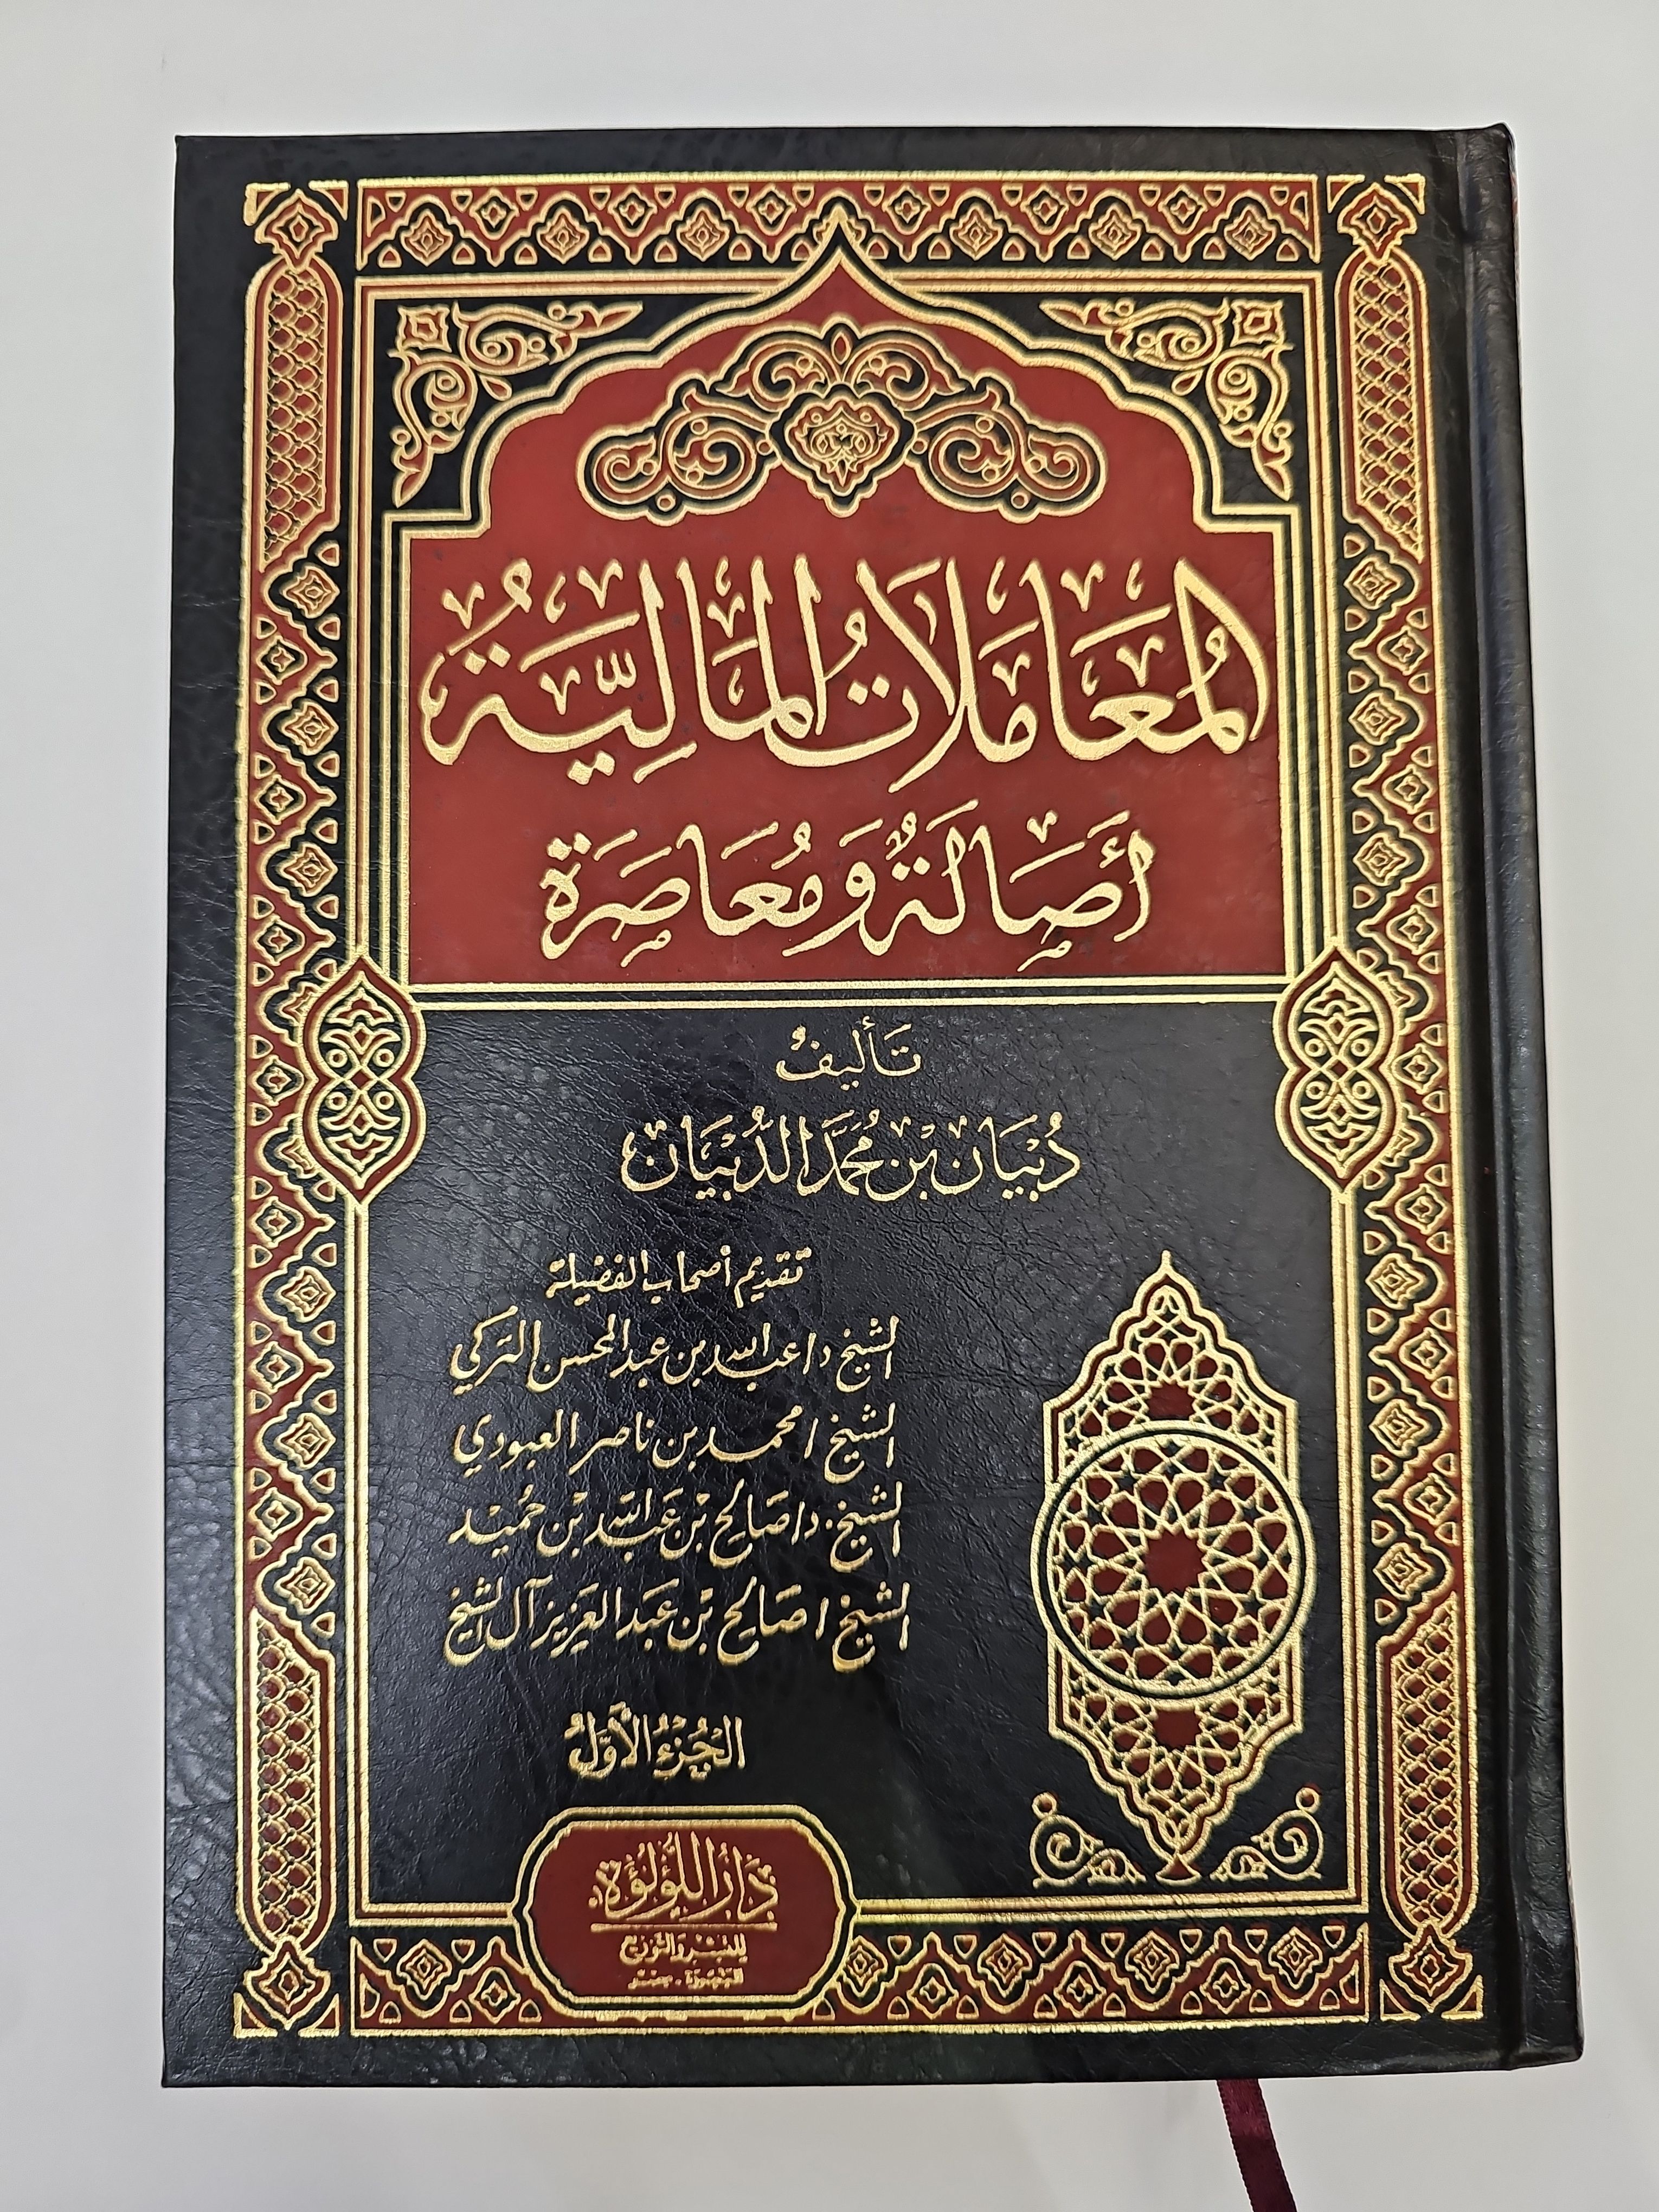 المُعَامَلَاتُ المَالِيَّةُ
أَصَالَةٌ وَمُعَاصَرَة
تَأليفُ
دُبْيَان بْن مُحَمَّد الدُّبْيَان
تقديم أصحاب الفضيلة
الشيخ د/عبد الله بن عبد المحسن التركي
الشيخ/محمد بن ناصر العبودي
الشيخ.د/صَالح بْن عَبد الله بْن حُميْد
الشيخ/صَالح بْن عَبد العَزيز آل الشيخ
الجُزْءُ الأَوَّلُ
دَارُ اللُّؤْلُؤَة
للنشر والتوزيع
المنصورة - مصر